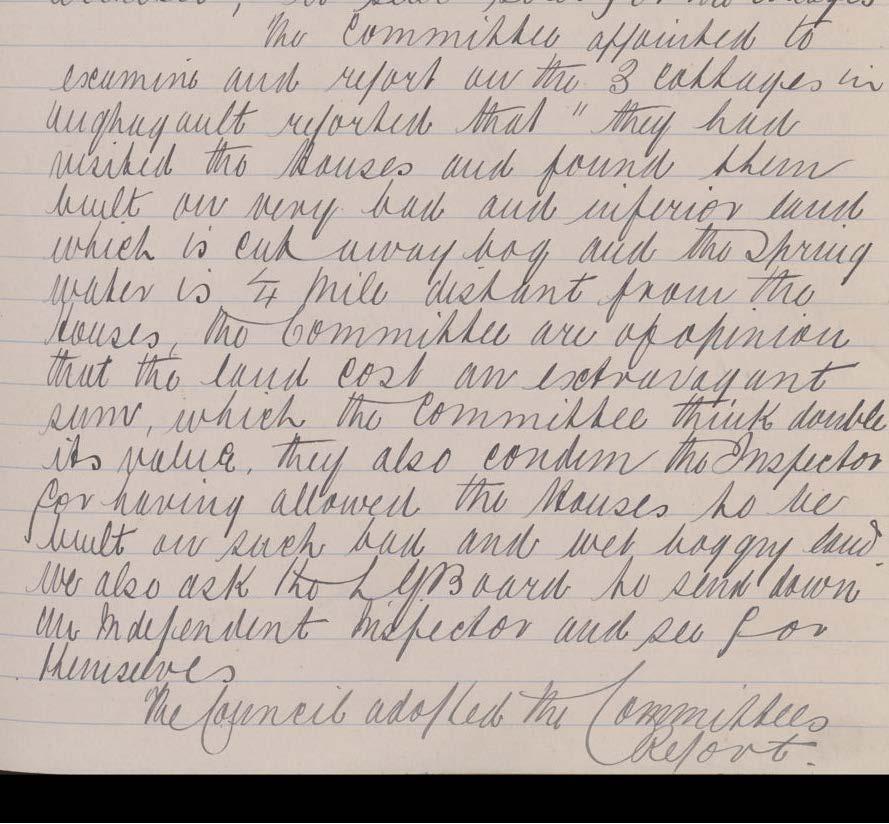 The Committee appointed to
examine and report on the 3 cottages in
Aughagault reported that " they had
visited the Houses and found them
built on very bad and inferior land
which is cut away bog and the Spring
water is 1/4 Mile distant from the
Houses, the Committee are of opinion
that the land cost an extravagant
sum, which the Committee think double
its value, they also condem the Inspector
for having allowed the Houses to be
built on such bad and wet boggy land.
We also ask the L G Board to send down
an Independent Inspector and see for
themselves
The Council adopted the Committees
Report.